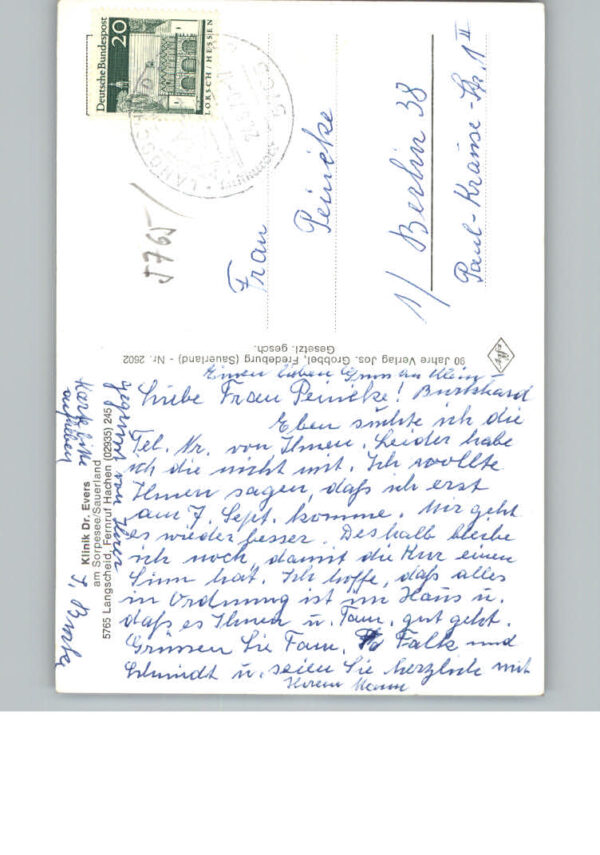 Deutsche Bundespost
20
LORSCH / HESSEN
LANGSCHEID
5765
Frau
Peinicke
1/ Berlin 38
Paul-Krause-Str. 1 II
90 Jahre Verlag Jos. Grobbel, Fredeburg (Sauerland) - Nr. 2602
Gesetzl. gesch.
Einen lieben Gruss an Klein
Burkhard
Liebe Frau Peinicke!
Eben suchte ich die
Tel. Nr. von Ihnen. Leider habe
ich die nicht mit. Ich wollte
Ihnen sagen, daß ich erst
am 7. Sept. komme. Mir geht
es wieder besser. Deshalb bleibe
ich noch, damit die Kur einen
Sinn hat. Ich hoffe, daß alles
in Ordnung ist im Haus u.
daß es Ihnen u. Fam. gut geht.
Grüssen Sie Fam. Falk und
Schmidt u. seien Sie herzlich mit
Ihrem Mann
gegrüsst von Ihrer
Karte bitte
aufheben
Klinik Dr. Evers
am Sorpesee/Sauerland
5765 Langscheid, Fernruf Hachen (02935) 245